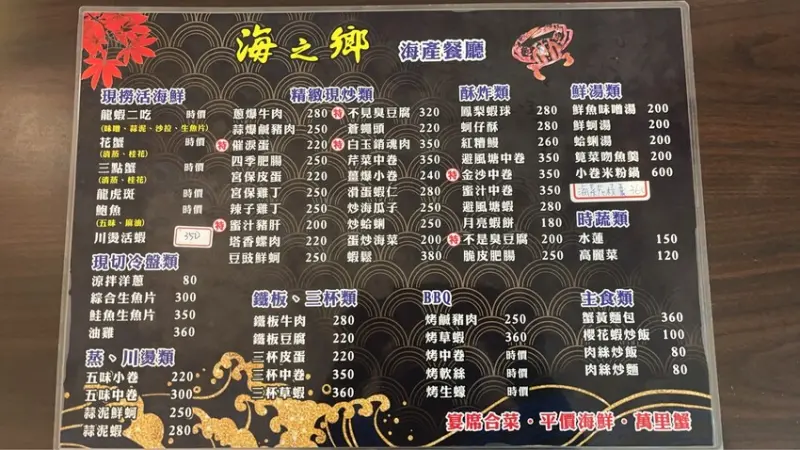 海之鄉 海產餐廳
現撈活海鮮
龍蝦二吃 時價
(味噌、蒜泥、沙拉、生魚片)
花蟹 時價
(清蒸、桂花)
三點蟹 時價
(清蒸、桂花)
龍虎斑 時價
鮑魚 時價
(五味、麻油)
川燙活蝦 350
現切冷盤類
涼拌洋蔥 80
綜合生魚片 300
鮭魚生魚片 350
油雞 360
蒸、川燙類
五味小卷 220
五味中卷 300
蒜泥鮮蚵 250
蒜泥蝦 280
精緻現炒類
蔥爆牛肉 280
蒜爆鹹豬肉 250
特 催淚蛋 220
四季肥腸 250
宮保皮蛋 220
宮保雞丁 250
辣子雞丁 250
特 蜜汁豬肝 200
塔香螺肉 220
豆豉鮮蚵 250
特 不見臭豆腐 320
蒼蠅頭 220
特 白玉銷魂肉 350
芹菜中卷 350
薑爆小卷 240
滑蛋蝦仁 280
炒海瓜子 250
炒蛤蜊 250
蛋炒海菜 200
蝦鬆 380
鐵板、三杯類
鐵板牛肉 280
鐵板豆腐 220
三杯皮蛋 220
三杯中卷 350
三杯草蝦 360
酥炸類
鳳梨蝦球 280
蚵仔酥 280
紅糟鰻 260
避風塘中卷 350
特 金沙中卷 350
蜜汁中卷 350
避風塘蝦 280
月亮蝦餅 180
特 不是臭豆腐 200
脆皮肥腸 250
BBQ
烤鹹豬肉 250
烤草蝦 360
烤中卷 時價
烤軟絲 時價
烤生蠔 時價
鮮湯類
鮮魚味噌湯 200
鮮蚵湯 200
蛤蜊湯 200
莧菜吻魚羹 200
小卷米粉鍋 600
時蔬類
水蓮 150
高麗菜 120
主食類
蟹黃麵包 360
櫻花蝦炒飯 100
肉絲炒飯 80
肉絲炒麵 80
宴席台菜·平價海鮮·萬里蟹